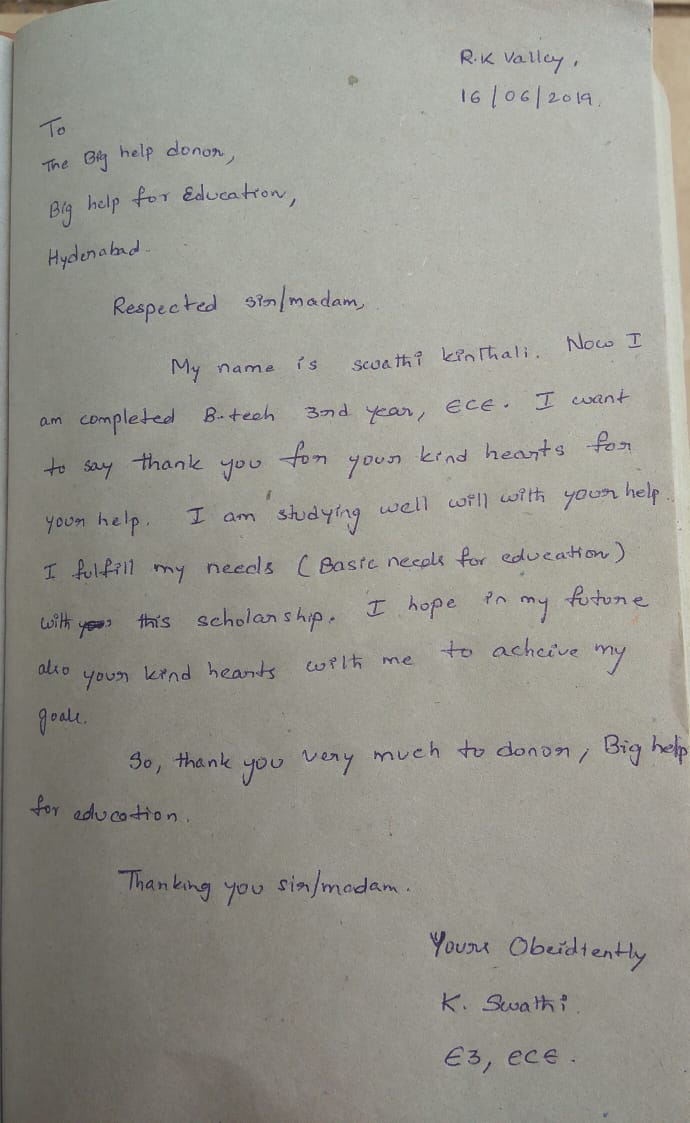 R.K Valley,
16/06/2019.
To
The Big help donor,
Big help for Education,
Hyderabad.
Respected sir/madam,
My name is swathi kinthali. Now I
am completed B-tech 3rd year, ECE. I want
to say thank you for your kind hearts for
your help. I am studying well will with your help.
I fulfill my needs (Basic needs for education)
with this scholarship. I hope in my future
also your kind hearts with me to acheive my
goals.
So, thank you very much to donor, Big help
for education.
Thanking you sir/madam.
Yours Obeidiently
K. Swathi
E3, ECE.